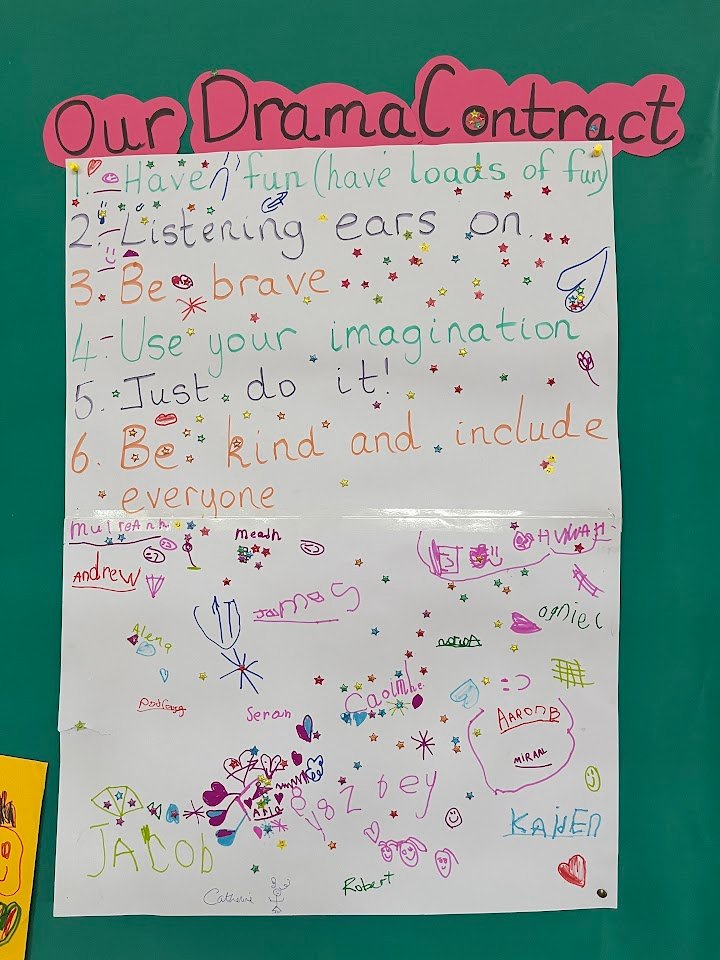 Our Drama Contract
1. Have fun (have loads of fun)
2. Listening ears on.
3. Be brave
4. Use your imagination
5. Just do it!
6. Be kind and include
everyone
Meabh
Andrew
James
Alena
Caoimhe
Seran
AARON B
MIRAAL
KAIDEN
JACOB
Robert
Catherine